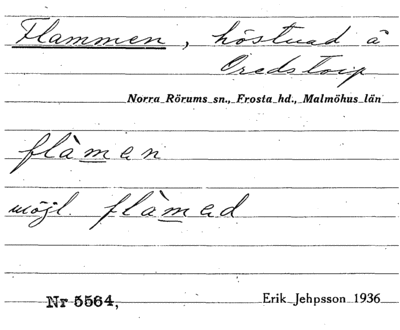 Flammen, höstuad å
Oredstorp
Norra Rörums sn., Frosta hd., Malmöhus län
flàmen
möjl. flàmed
Nr 5564,
Erik Jehpsson 1936